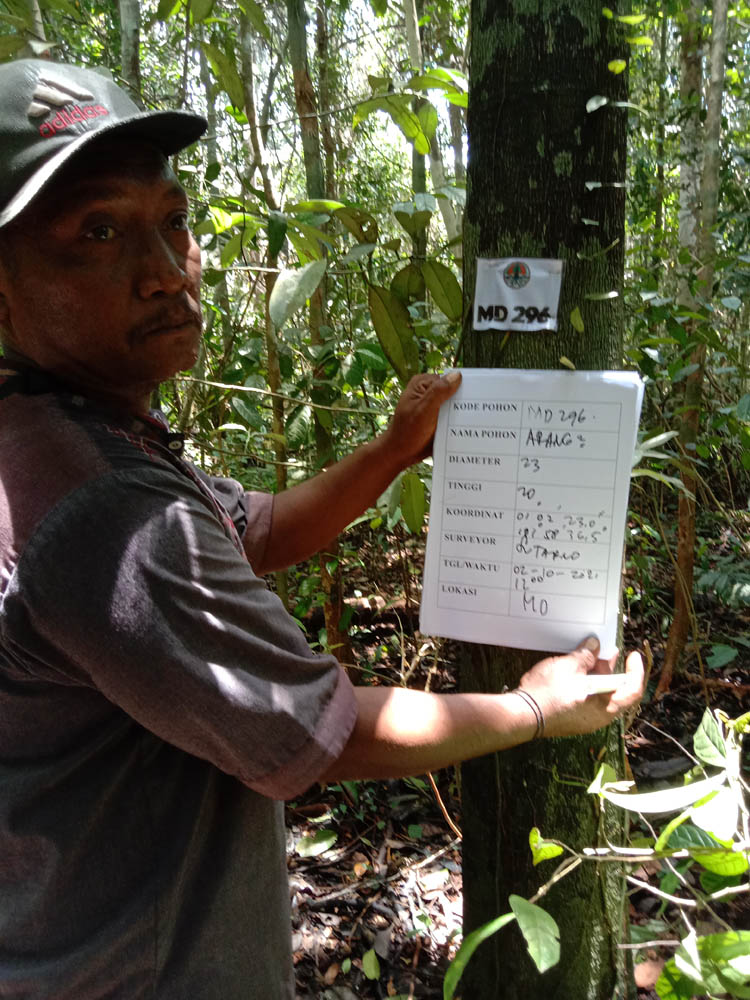 adidas
MD 296
KODE POHON MD 296.
NAMA POHON ARANG2
DIAMETER 23
TINGGI 20
KOORDINAT 01° 02' 23.0"
58' 36.5"
SURVEYOR
TGL/WAKTU 02-10-2021
12⁰⁰
LOKASI MD